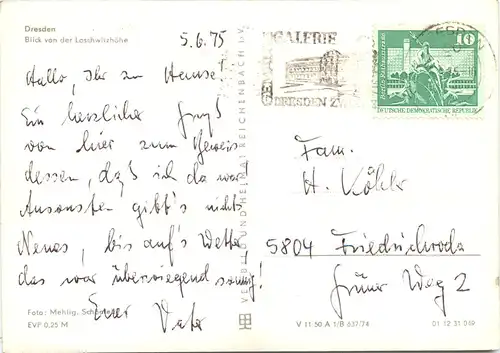 Dresden
Blick von der Loschwitzhöhe
5.6.75
Hallo, Ihr zu Hause!
Ein herzlicher Gruß
von hier zum Beweis
dessen, daß ich da war
Ansonsten gibt's nichts
Neues, bis auf's Wetter
das war überwiegend sonnig!
Euer Vater
Foto: Mehlig,
EVP 0,25 M
VERLAG BILD UND HEIMAT REICHENBACH I. V.
GALERIE
DRESDEN
10
DEUTSCHE DEMOKRATISCHE REPUBLIK
Fam.
H. Köhler
5804 Friedrichroda
Grüner Weg 2
V 11 50 A 1/B 637/74
01 12 31 019